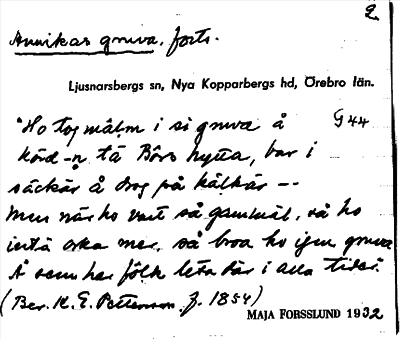 2.
Annikas gruva, forts.
Ljusnarsbergs sn, Nya Kopparbergs hd, Örebro län.
"Ho tog målm i si gruva å G44
körd -n tå Börs hytta, bar i
säckär å drog på kälkär --
Men när ho vart så gammäl, så ho
intä orka mer, så broa ho igen gruva
Å sen har fölk leta där i alla tider."
(Ber. K. E. Petterson f. 1854)
MAJA FORSSLUND 1932